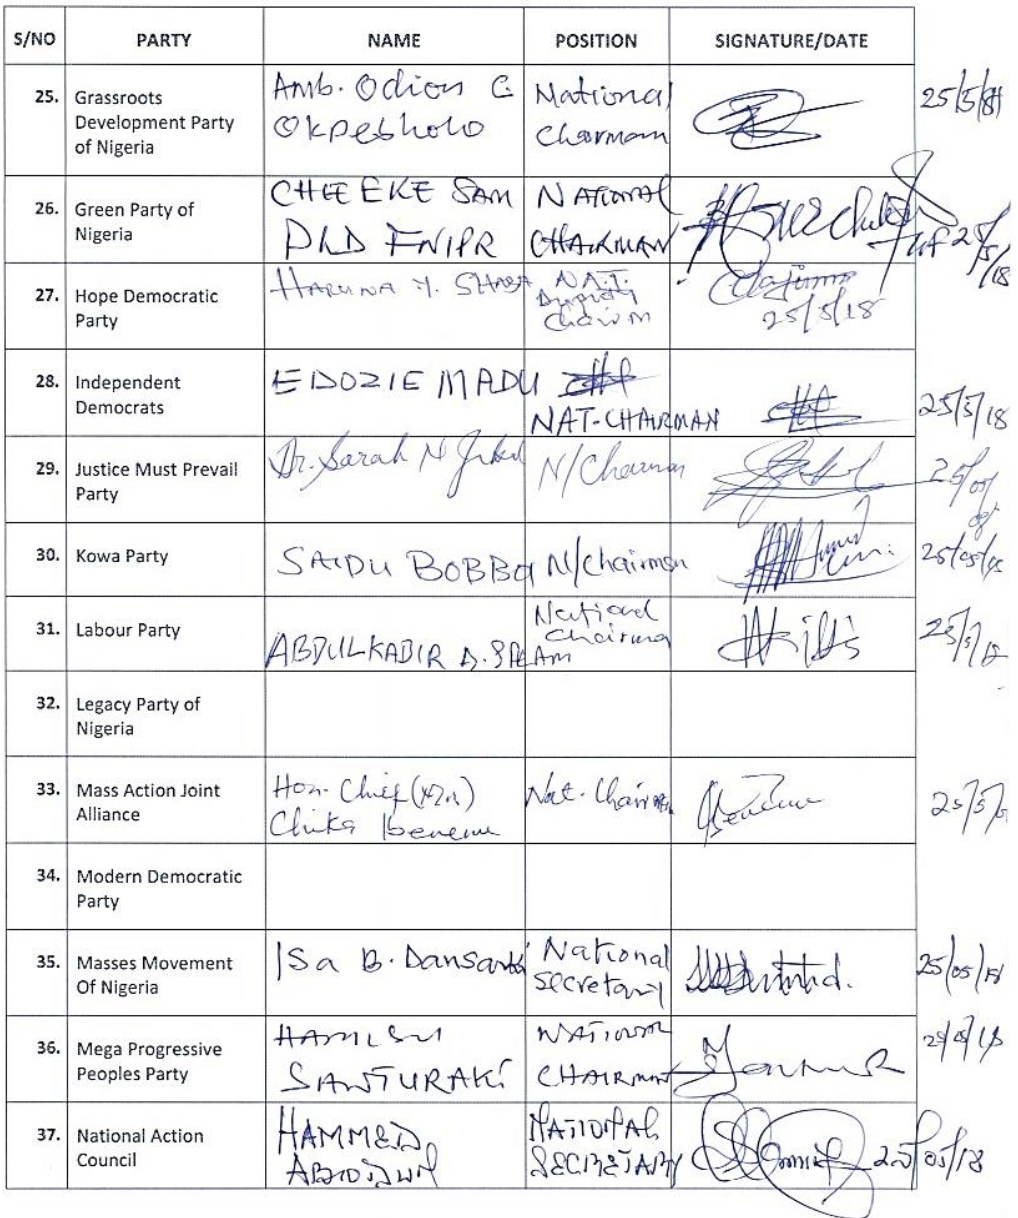 S/NO PARTY NAME POSITION SIGNATURE/DATE
25. Grassroots Development Party of Nigeria Amb. Odion G Okpebholo National Chairman 25/5/18
26. Green Party of Nigeria CHIEF EKE SAM PhD FNIPR NATIONAL CHAIRMAN 25/5/18
27. Hope Democratic Party HARUNA Y. SHABA NAT. Deputy Chairm 25/5/18
28. Independent Democrats EDOZIE MADU NAT-CHAIRMAN 25/5/18
29. Justice Must Prevail Party Dr. Sarah N N/Chairman 25/05/
30. Kowa Party SAIDU BOBBOI N/Chairman 25/05/18
31. Labour Party ABDULKADIR A. SALAM National Chairman 25/5/18
32. Legacy Party of Nigeria
33. Mass Action Joint Alliance Hon. Chief (Mrs) Chika Ibeneme Nat. Chairman 25/5/
34. Modern Democratic Party
35. Masses Movement Of Nigeria Isa B. Dansarki National Secretary 25/05/18
36. Mega Progressive Peoples Party HAMISU SANTURAKI NATIONAL CHAIRMAN
37. National Action Council HAMMED NATIONAL SECRETARY 25/05/18